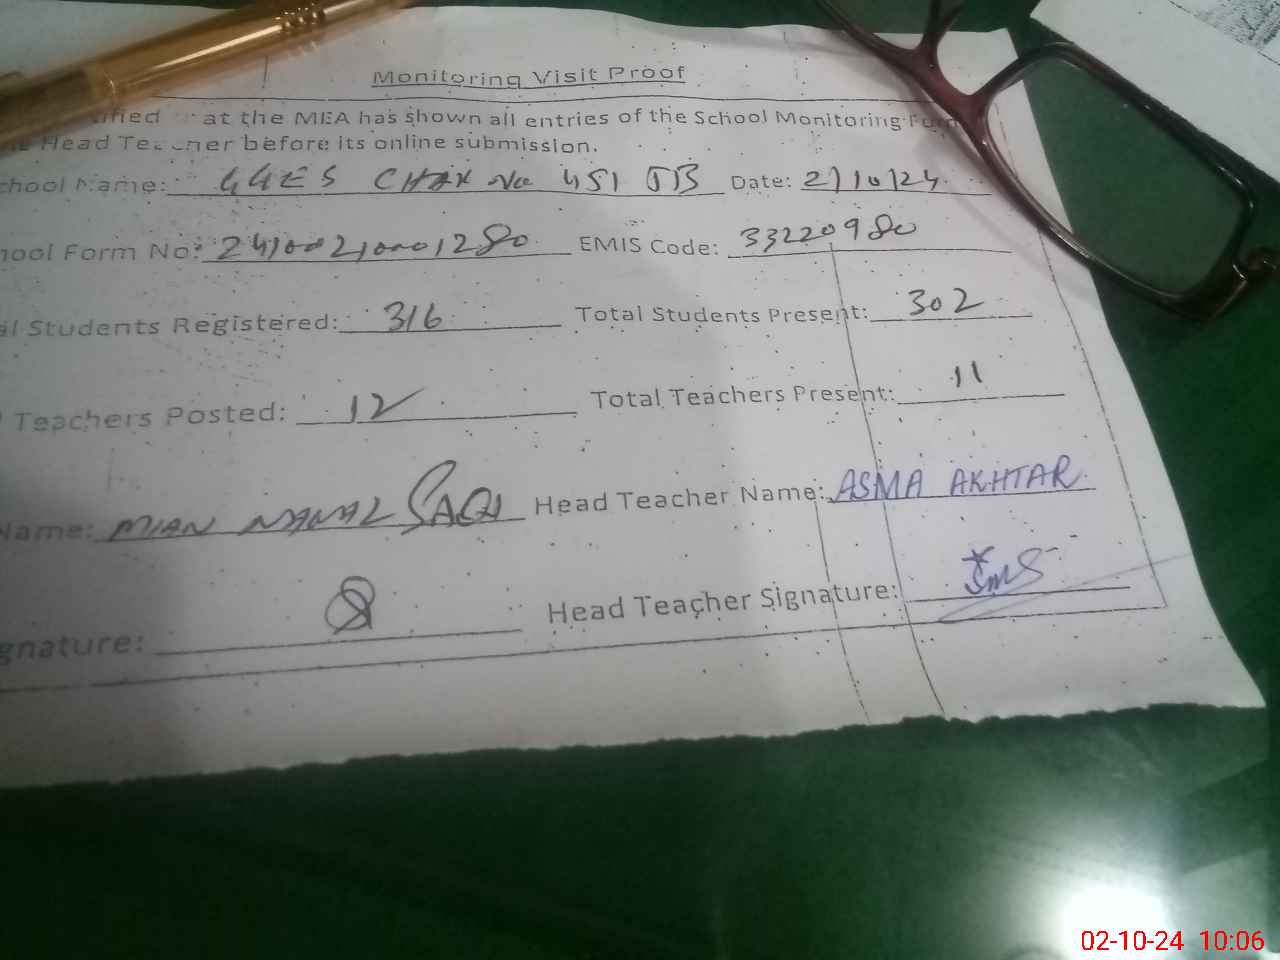 Monitoring Visit Proof
at the MEA has shown all entries of the School Monitoring
Head before its online submission.
chool Name: GGES CHAK No 451 JB Date: 2/10/24
hool Form No: EMIS Code: 33220980
al Students Registered: 316 Total Students Present: 302
Teachers Posted: 12 Total Teachers Present: 11
Name: MIAN Head Teacher Name: ASMA AKHTAR
gnature: Head Teacher Signature:
02-10-24 10:06